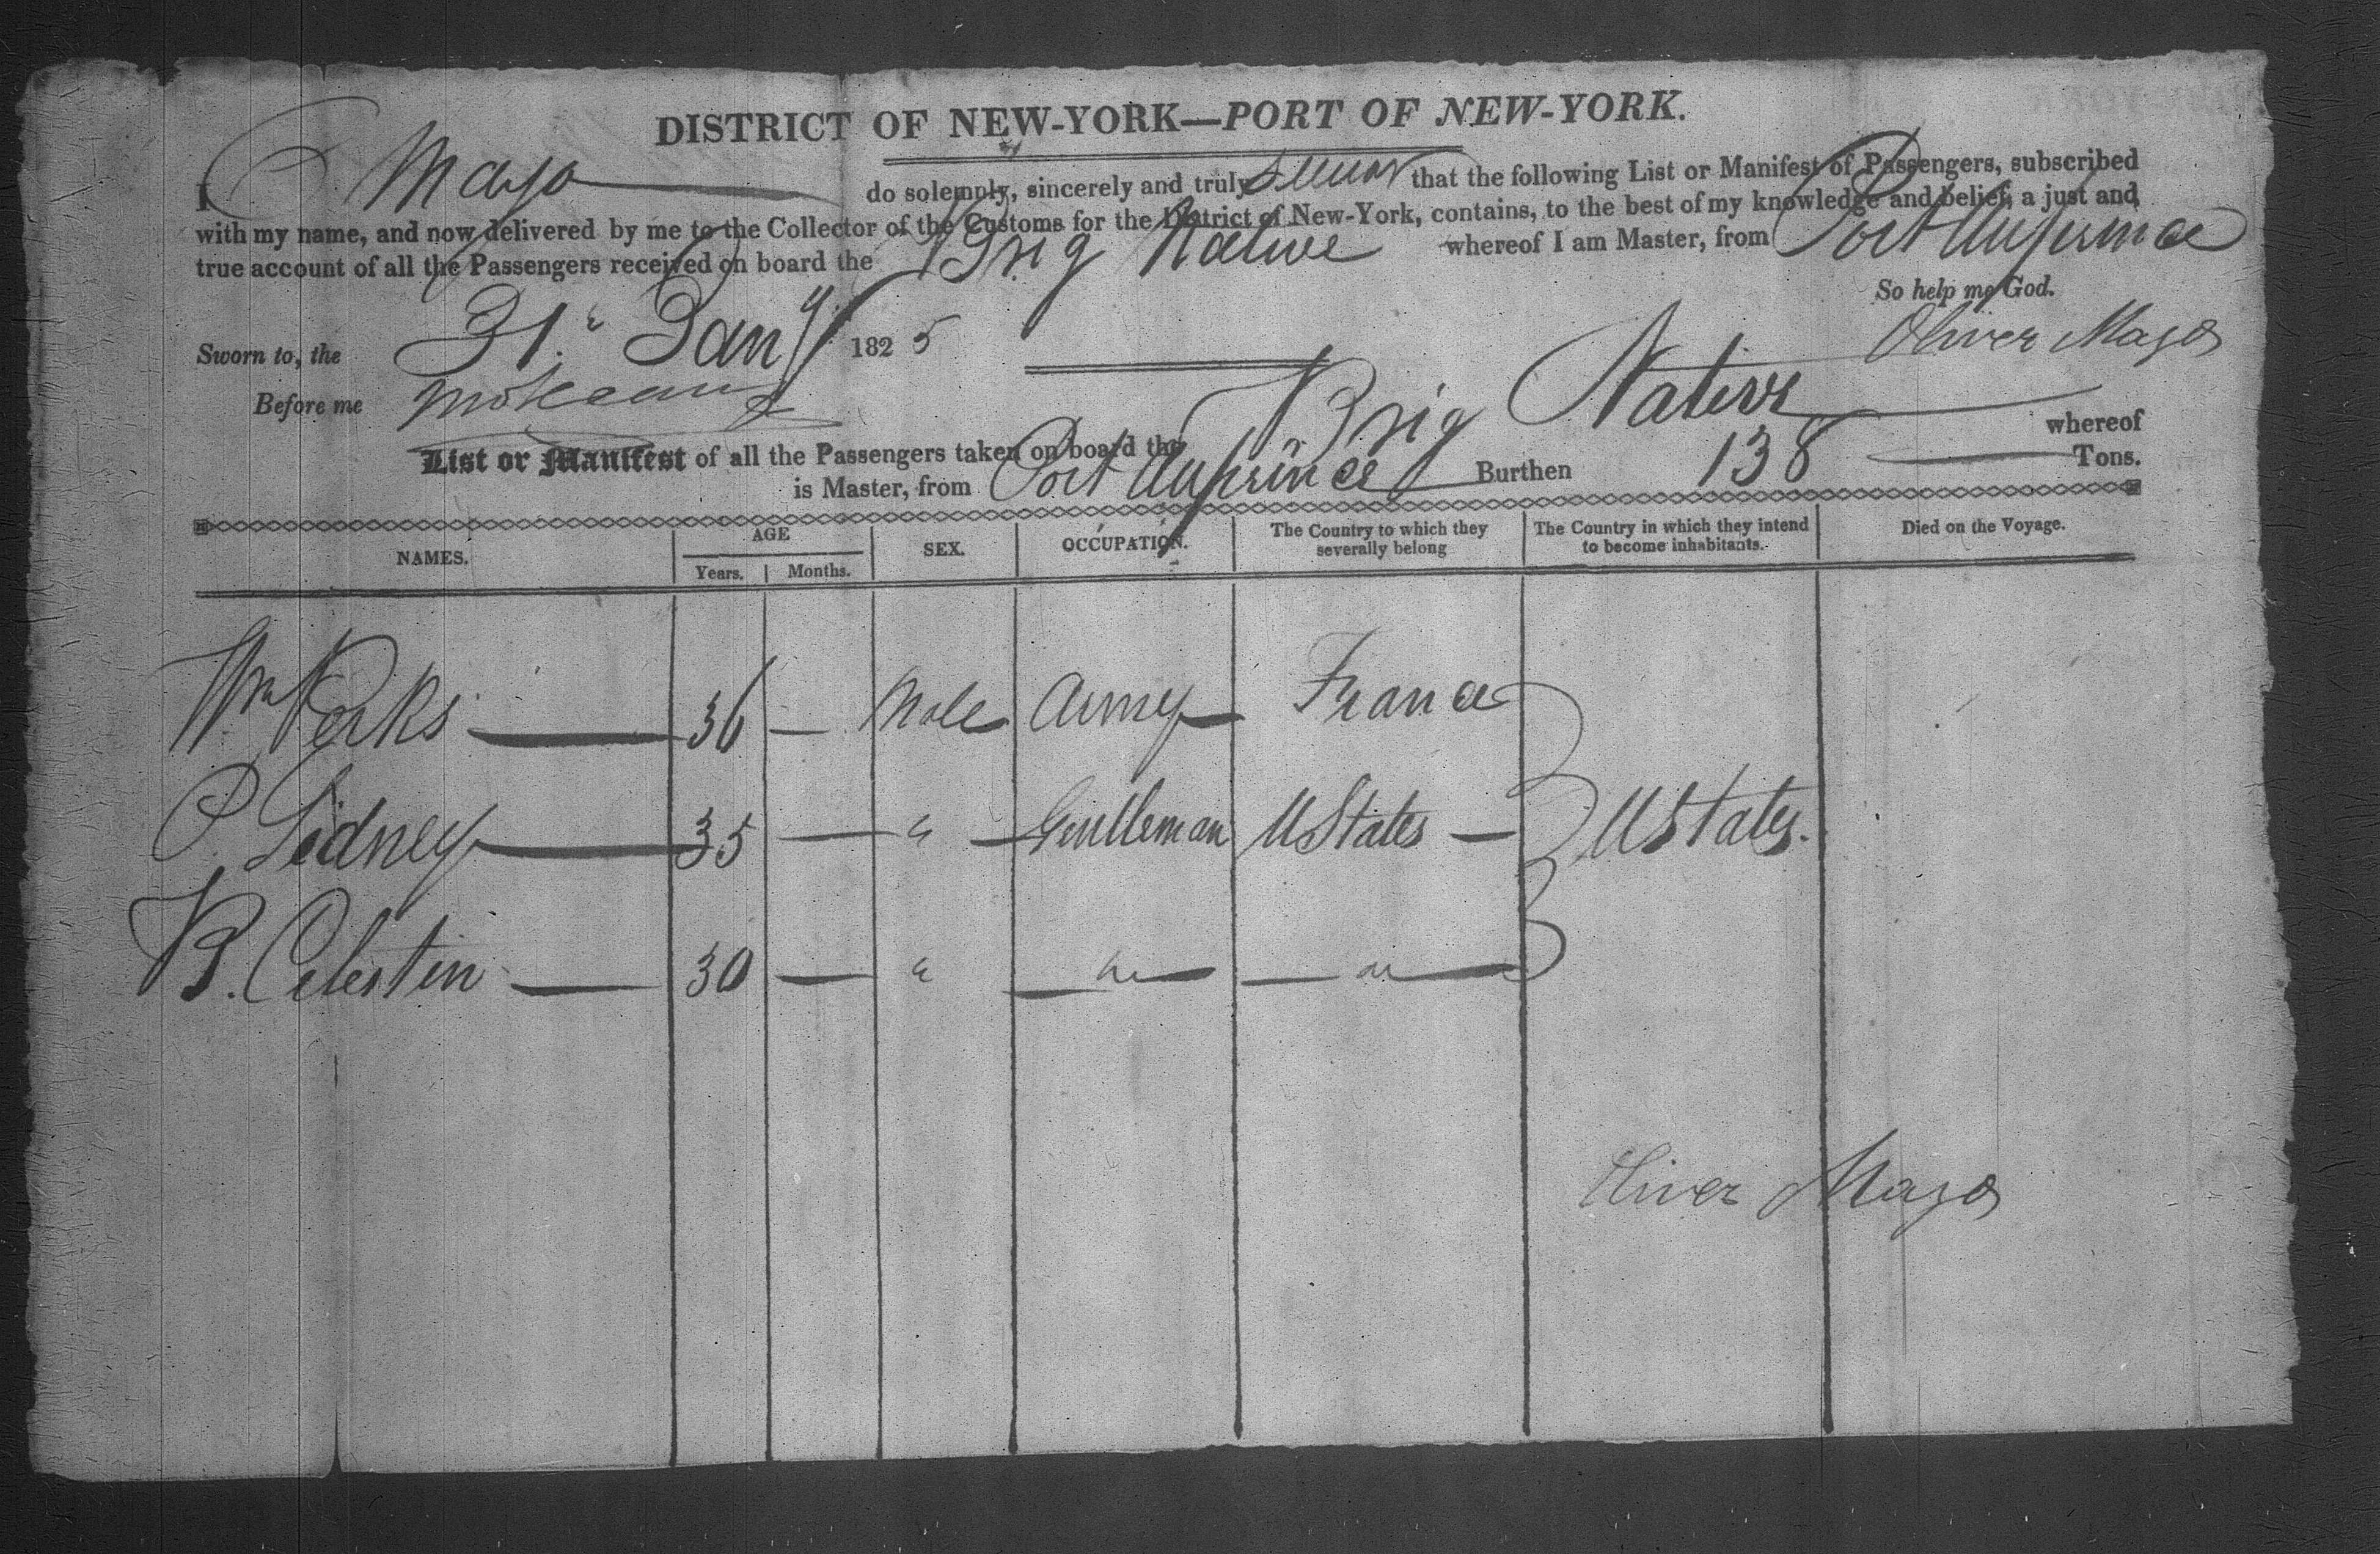 DISTRICT OF NEW-YORK—PORT OF NEW-YORK.
I O Mayo do solemnly, sincerely and truly swear that the following List or Manifest of Passengers, subscribed
with my name, and now delivered by me to the Collector of the Customs for the District of New-York, contains, to the best of my knowledge and belief, a just and
true account of all the Passengers received on board the Brig Native whereof I am Master, from Port Auprince
So help me God.
Sworn to, the 31. Jany 1825 Oliver Mayo
Before me
List or Manifest of all the Passengers taken on board the Brig Native whereof
is Master, from Port Auprince Burthen 138 Tons.
NAMES. AGE Years. Months. SEX. OCCUPATION. The Country to which they severally belong The Country in which they intend to become inhabitants. Died on the Voyage.
Wm Perks — 36 — Male Army — France
P. Sidney — 35 — " — Gentleman UStates — UStates.
B. Celestin — 30 — " — " — — " —
Oliver Mayo